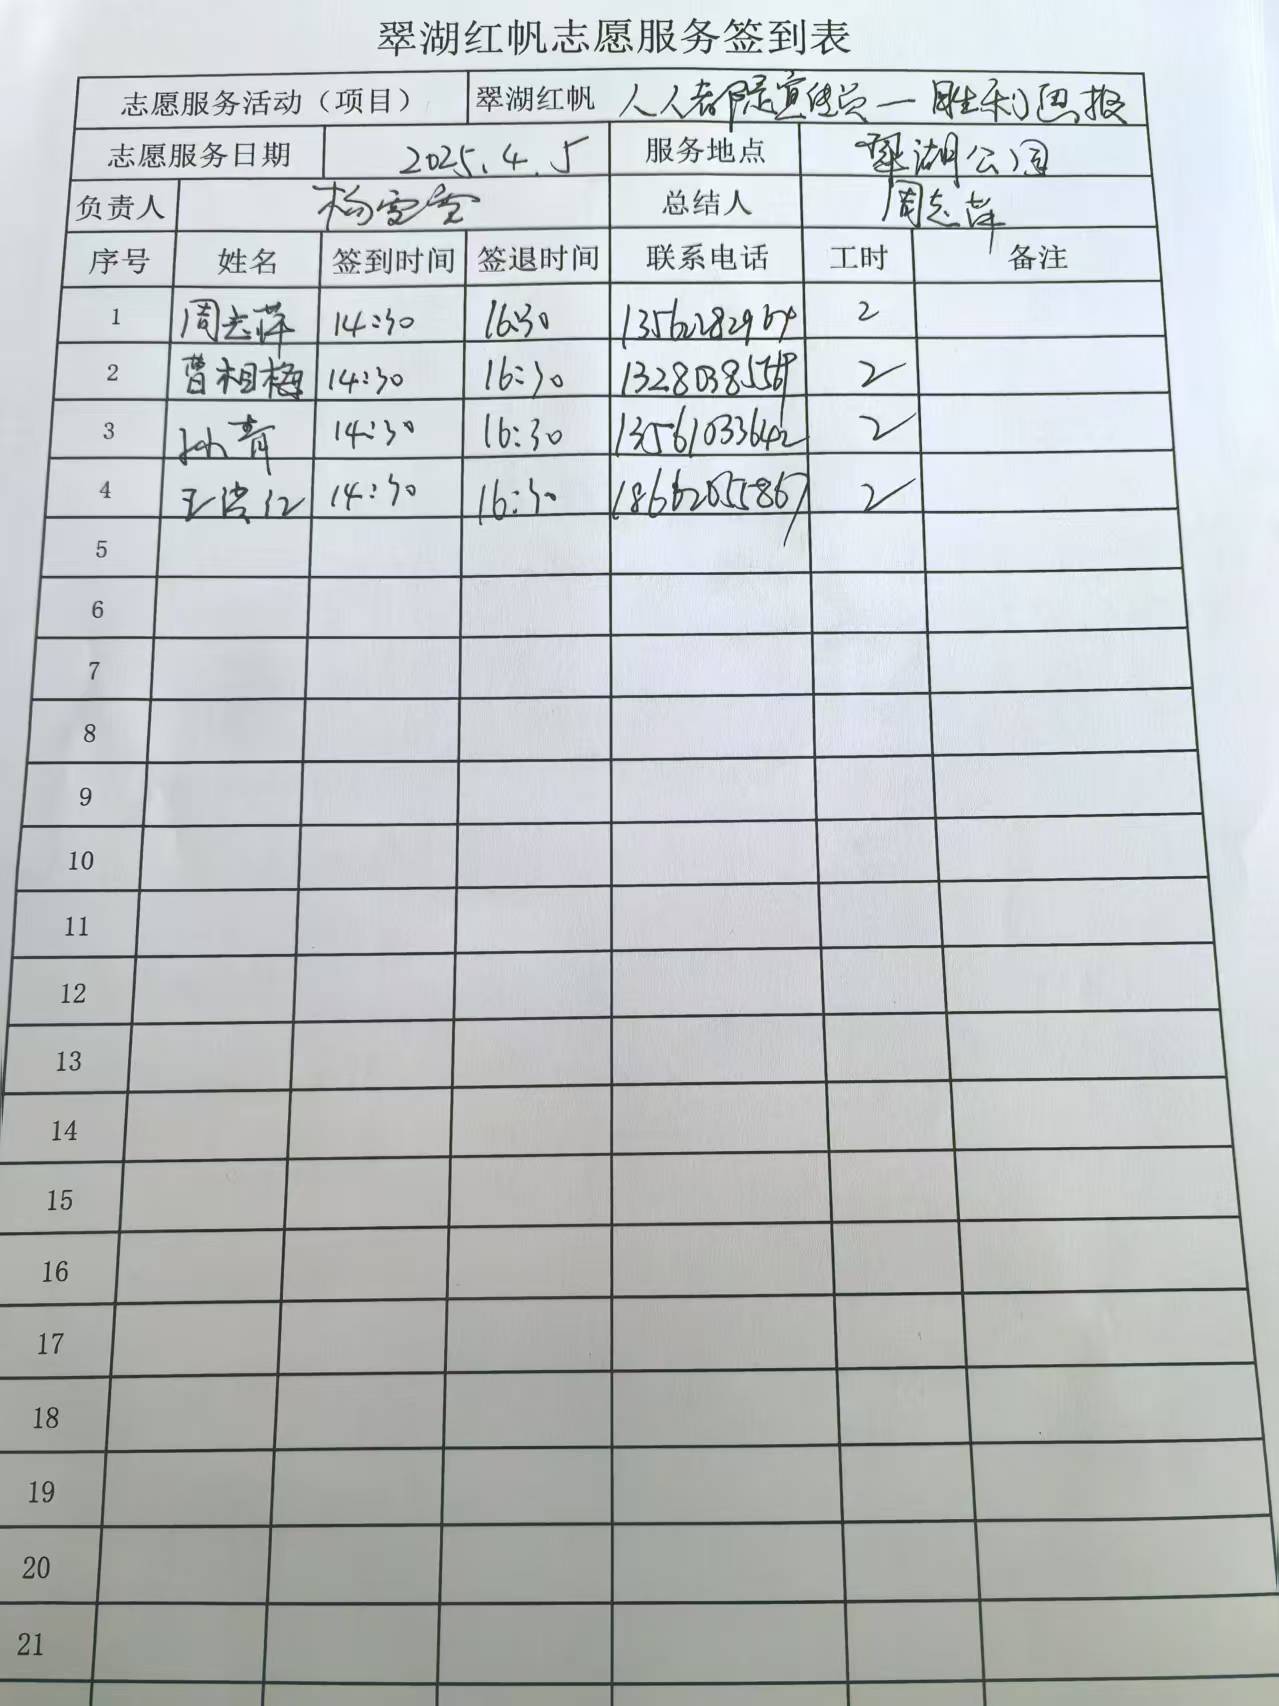 翠湖红帆志愿服务签到表
志愿服务活动（项目） 翠湖红帆 人人都是宣传员一胜利巴报
志愿服务日期 2025.4.5 服务地点 翠湖公园
负责人 杨雪莹 总结人 周志萍
序号 姓名 签到时间 签退时间 联系电话 工时 备注
1 周志萍 14:30 16:30 2
2 曹相梅 14:30 16:30 2
3 孙青 14:30 16:30 13561033642 2
4 14:30 16:30 2
5
6
7
8
9
10
11
12
13
14
15
16
17
18
19
20
21